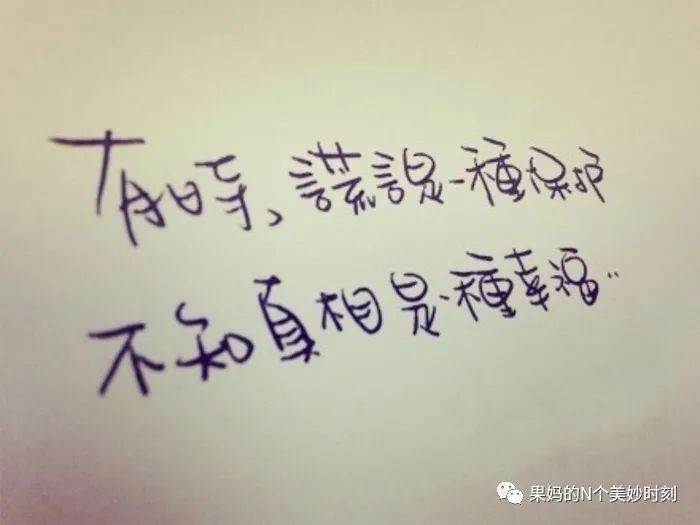 有時、謊言是一種保护
不知真相是一種幸福..
果妈的N个美妙时刻